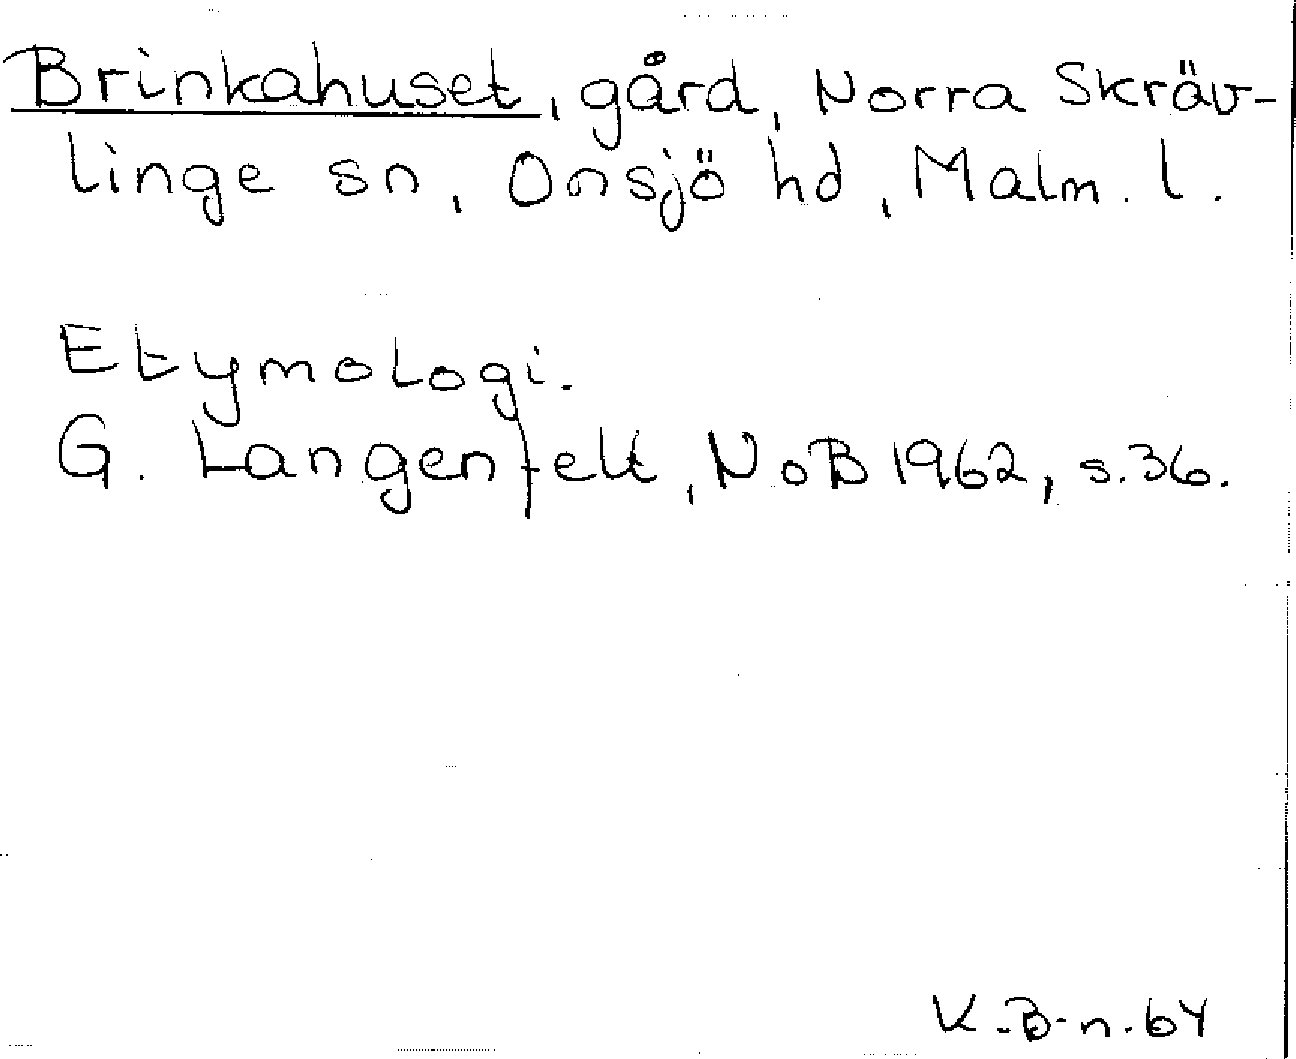 Brinkahuset, gård, Norra Skräv-
linge sn, Onsjö hd, Malm. l.
Etymologi.
G. Langenfelt, NoB 1962, s. 36.
K. B-n. 64